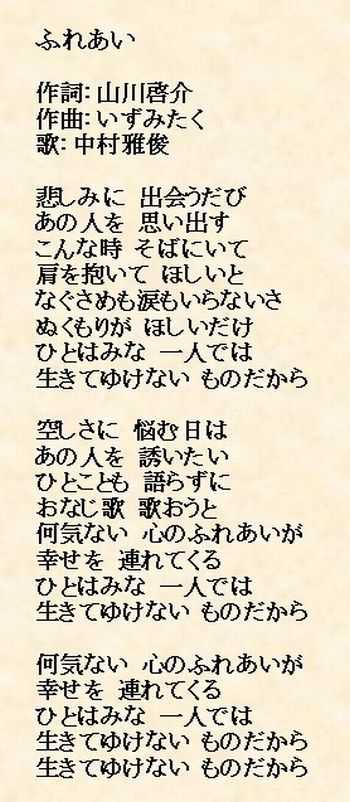 ふれあい
作詞：山川啓介
作曲：いずみたく
歌：中村雅俊
悲しみに 出会うたび
あの人を 思い出す
こんな時 そばにいて
肩を抱いて ほしいと
なぐさめも涙もいらないさ
ぬくもりが ほしいだけ
ひとはみな 一人では
生きてゆけない ものだから
空しさに 悩む日は
あの人を 誘いたい
ひとことも 語らずに
おなじ歌 歌おうと
何気ない 心のふれあいが
幸せを 連れてくる
ひとはみな 一人では
生きてゆけない ものだから
何気ない 心のふれあいが
幸せを 連れてくる
ひとはみな 一人では
生きてゆけない ものだから
生きてゆけない ものだから